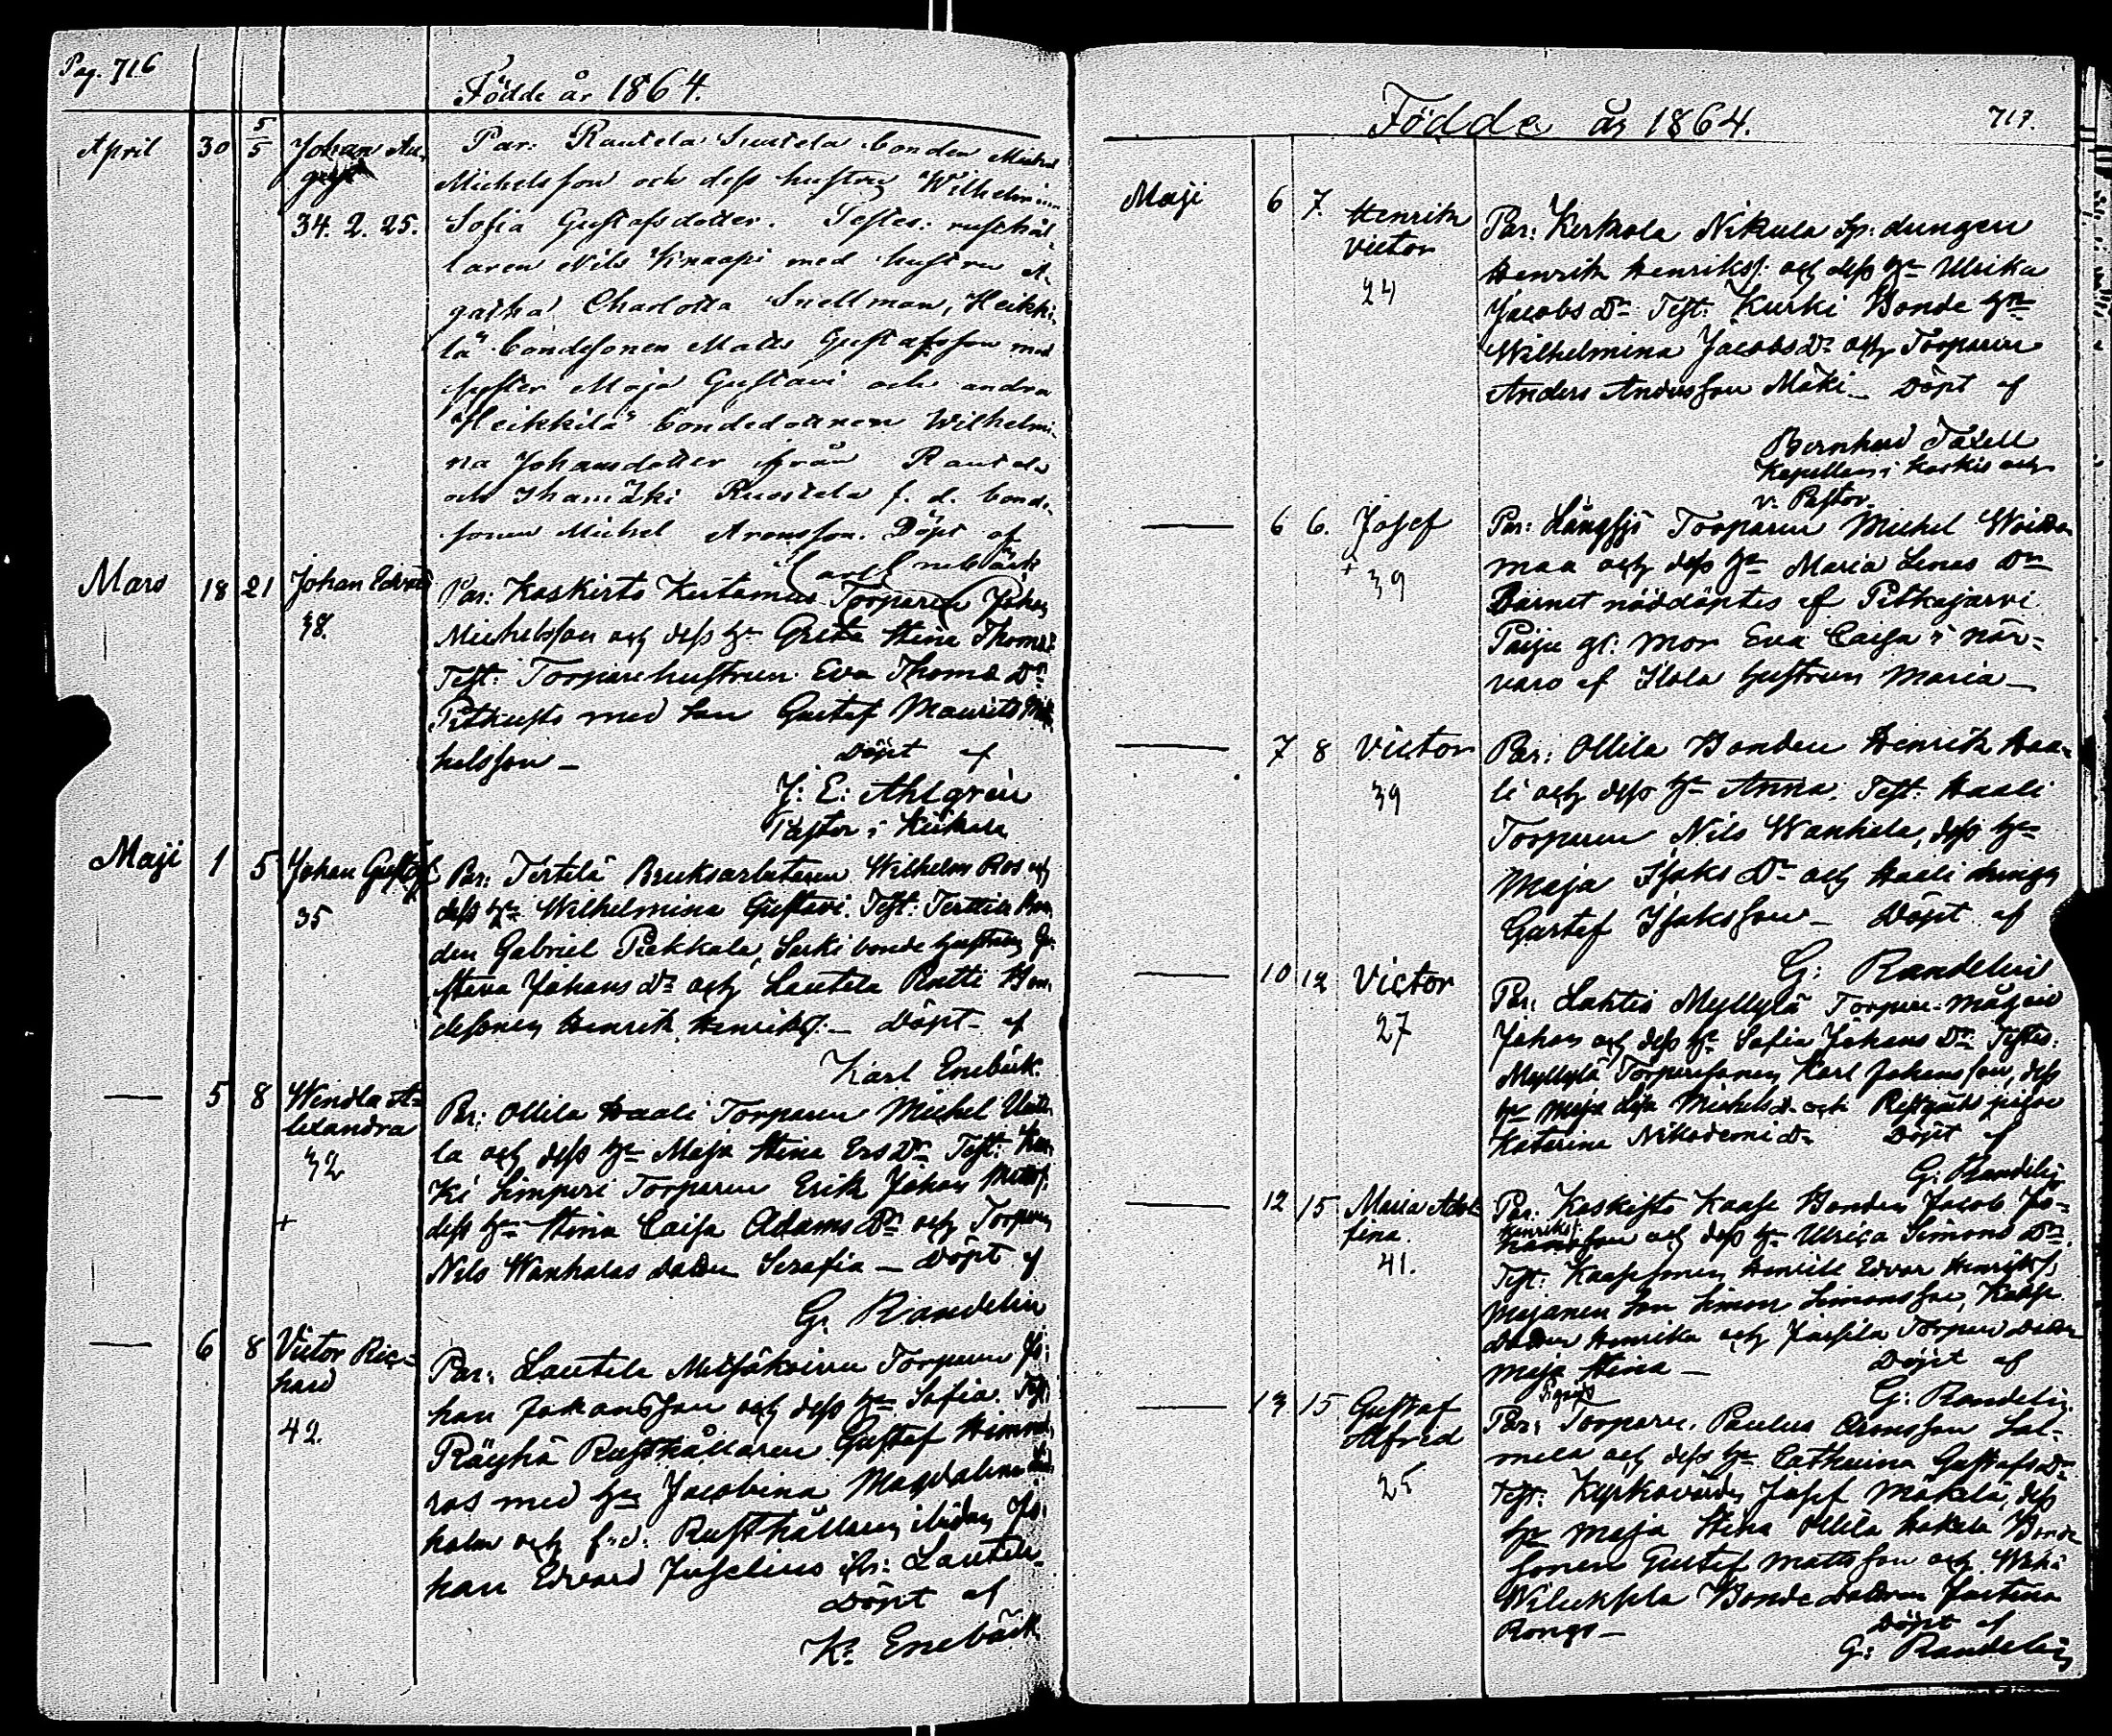 Pag. 716
Födde år 1864.
April 30 5/5 Johan Au-
gust
34. 2. 25.
Par: Rautela Suutela bonden Michel
Michelsson och dess hustru Wilhelmina
Sofia Gustafsdotter. Testes: rusthål-
laren Nils Knaapi med hustru A-
gatha Charlotta Snellman, Heikki-
lä bondesonen Matts Gustafsson med
syster Maja Gustavi och andra
Heikkilä bondedottren Wilhelmi-
na Johansdotter ifrån Rautela
och Ihamäki Ruostela f. d. bonde-
sonen Michel Aronsson. Döpt af
Carl Enebäck
Mars 18 21 Johan Edvard
38.
Par: Koskists Torparen Johan
Michelsson och dess h:u Greta Stina Thoms
Test: Torparehustrun Eva Thoms Dr
med son Gustaf Maurits Mic-
helsson –
Döpt af
J: E: Ahlgren
Pastor i Kiikala
Maji 1 5 Johan Gustaf
35
Par: Terttilä Bruksarbetaren Wilhelm Ros och
dess h:u Wilhelmina Gustavi. Test: Terttilä Bon-
den Gabriel Pekkala, Särki bonde hustrun Gu-
stava Johans Dr och Lautela Rutti Bon-
desonen Henrik Henrikss. – Döpt af
Karl Enebäck.
— 5 8 Wendla A-
lexandra
32
+
Par: Ollila Haali Torparen Michel
la och dess h:u Maja Stina Ers Dr Test:
ki Simperi Torparen Erik Johan Matts:
dess h:u Stina Caisa Adams Dr och Torparen
Nils Wanhalas dotter Serafia – Döpt af
G. Randelin
— 6 8 Victor Ric-
hard
42.
Par: Lautela Metsäkoivu Torparen Jo-
han Johansson och dess h:u Sofia. Test:
Räyhä Rusthållaren Gustaf
ros med h:u Jacobina Magdalena
holm och f.d. Rusthållaren ibidem Jo-
han Edvard Juselius fr: Lautela
Döpt af
K: Enebäck
Födde år 1864.
717.
Maji 6 7. Henrik
Victor
24
Par: Kerkola Nikula Sp: drengen
Henrik Henrikss. och dess h:u Ulrika
Jacobs Dr Test: Kurki Bonde h:u
Wilhelmina Jacobs Dr och Torparen
Anders Andersson Mäki – Döpt af
Bernhard Taxell
Kapellan i Koskis och
v. Pastor
— 6 6. Josef
+ 39
Par: Långsjö Torparen Michel Woiden-
maa och dess h:u Maria Lenas Dr
Barnet nöddöptes af Pitkäjärvi
gl: mor Eva Caisa i när-
varo af Ilola hustrun Maria –
— 7 8 Victor
39
Par: Ollila Bonden Henrik Haa-
li och dess h:u Anna. Test: Haali
Torparen Nils Wanhala, dess h:u
Maja Isaks Dr och Haali dreng
Gustaf Isaksson – Döpt af
G: Randelin
— 10 12 Victor
27
Par: Lahtis Myllylä Torpare mågen
Johan och dess h:u Sofia Johans Dr Testes:
Myllylä Torparesonen Karl Johansson, dess
h:u Maja Lisa Michels D. och pigan
Katarina Nikodemi Dr Döpt af
G: Randelin
— 12 15 Maria Adol-
fina.
41.
Par: Koskists Kaase Bonden Jacob Jo-
Henrikss:
hansson och dess h:u Ulrica Simons Dr.
Test: Kaase sonen Henrik Edvar Henrikss,
son Simon Simonsson, Kaase
dotter Henrika och Torpare dotter
Maja Stina – Döpt af
G: Randelin
— 13 15 Gustaf
Alfred
25
Par: Torparen Paulus Aronsson Sal-
mela och dess h:u Catharina Gustafs Dr
Test: Kyrkovärden Josef Mäkelä, dess
h:u Maja Stina Ollila Bonde
sonen Gustaf Mattsson och
Bonde dottren Justina
Rongo –
Döpt af
G: Randelin